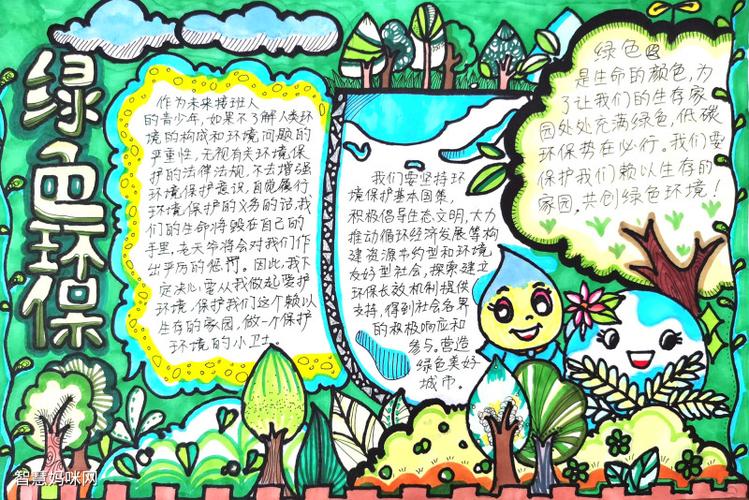 绿色环保
作为未来接班人
的青少年,如果不了解人类环
境的构成和环境问题的
严重性,无视有关环境保
护的法律法规,不去增强
环境保护意识,自觉履行
环境保护的义务的话,我
们的生命将毁在自己的
手里,老天爷将会对我们作
出严厉的惩罚。因此,我下
定决心要从我做起爱护
环境,保护我们这个赖以
生存的家园,做一个保护
环境的小卫士。
我们要坚持环
境保护基本国策,
积极倡导生态文明,大力
推动循环经济发展等构
建资源节约型和环境
友好型社会,探索建立
环保长效机制提供
支持,得到社会各界
的积极响应和
参与。营造
绿色美好
城市.
绿色
是生命的颜色,为
了让我们的生存家
园处处充满绿色,低碳
环保势在必行。我们要
保护我们赖以生存的
家园,共创绿色环境!
智慧妈咪网